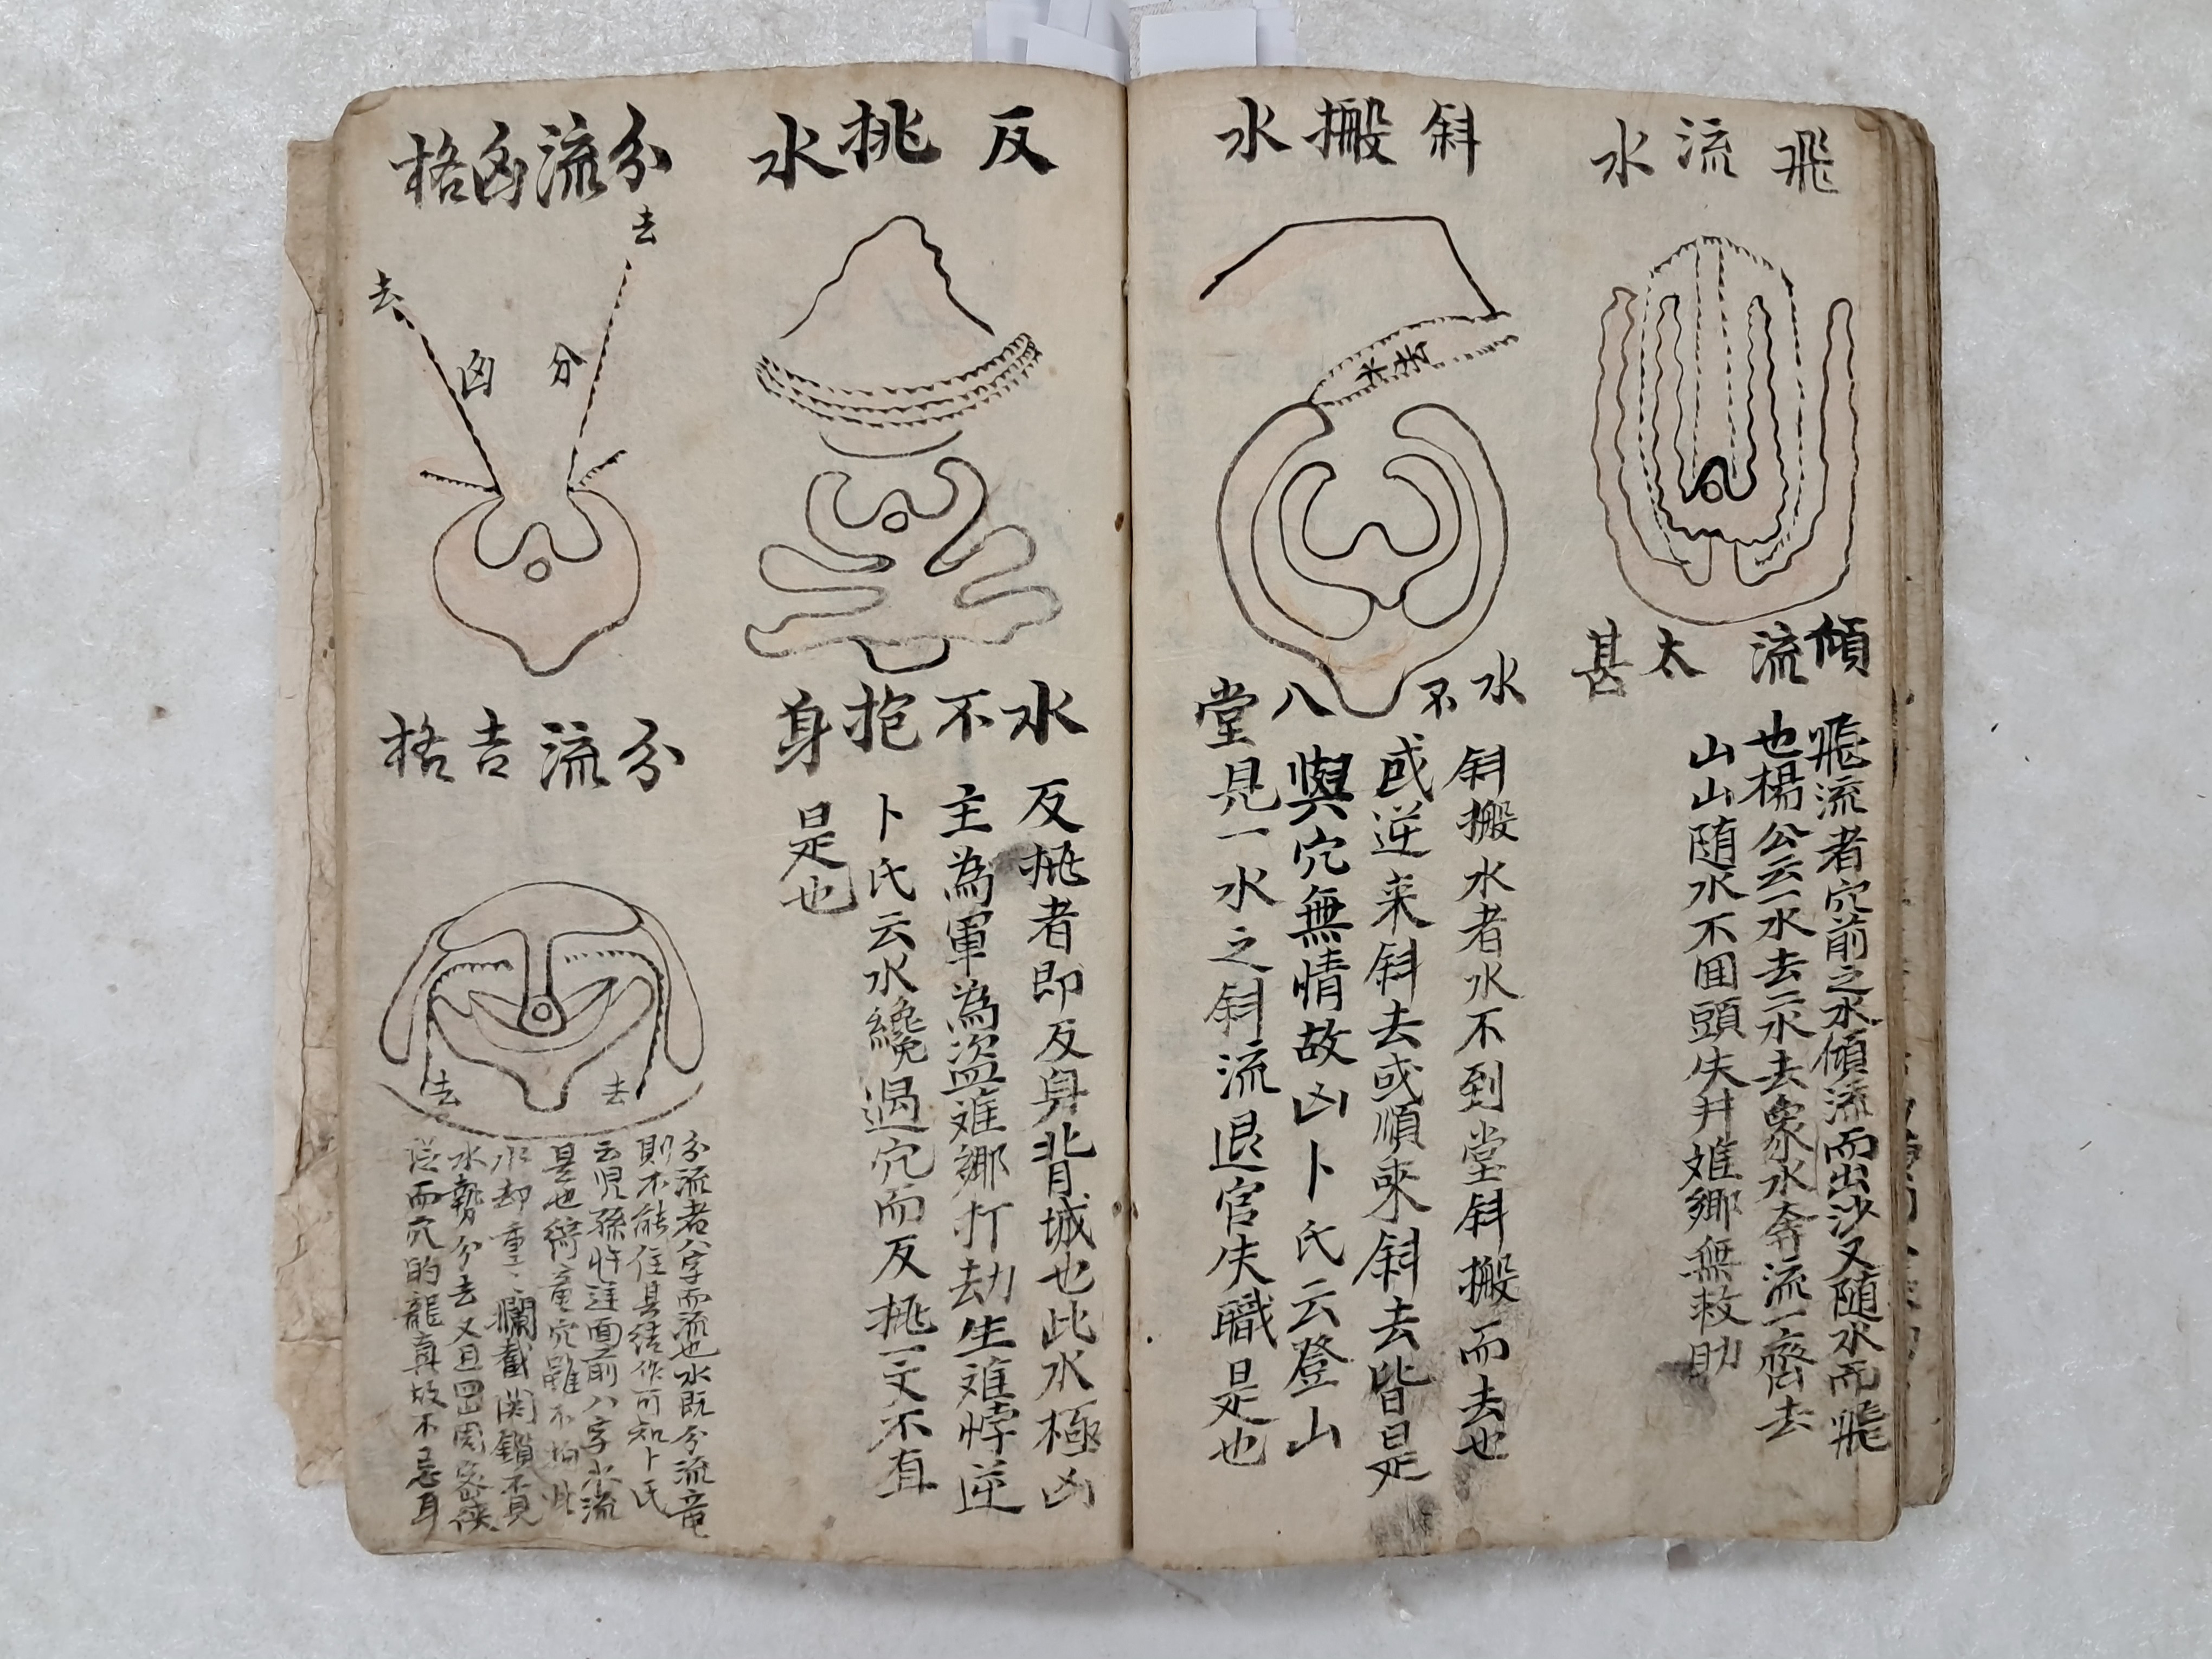 飛流水
傾流太甚
飛流者穴前之水傾流而出沙又随水而飛
也楊公云一水去二水去衆水奔流一齊去
山山随水不回頭失井離鄉無救助
斜搬水
水去
水不八堂
斜搬水者水不到堂斜斜搬而去也
或逆来斜去或順來斜去皆是
與穴無情故凶卜氏云登山
見一水之斜流退官失職是也
反挑水
水不抱身
反挑者即反身背城也此水極凶
主為軍為盗離鄉打劫生離悖逆
卜氏云水纔過穴而反挑一文不直
是也
分流凶格
去
去
分
凶
分流吉格
去
去
分流者八字而流也水既分流竜
則不能住其結作可知卜氏
云児孫忤逆面前八字水流
是也騎竜穴雖不拘此
水却重重攔截関鎖不見
水勢分去又且四周密
而穴的龍真故不忌耳